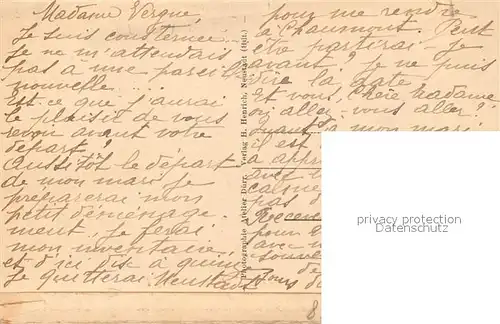 Madame Vergne,
Je suis consternée...
Je ne m'attendais
pas à une pareille
nouvelle....
Est-ce que j'aurai
le plaisir de vous
revoir avant votre
départ?
Aussitôt le départ
de mon mari je
préparerai mon
petit déménage-
ment, je ferai
mon inventaire,
et d'ici dix à quinze
je quitterai Neustadt
Photographie Atelier Dürr. Verlag H. Henrich, Neustadt (Hdt.)
pour me rendre
à Chaumont. Peut
être partirai-je
avant? Je ne puis
dire la date.
Et vous, Chère Madame
où aller-vous aller?
Quant à mon mari
il est
à appr
avec
pas d
pour
avec
souve
de
privacy protection
8